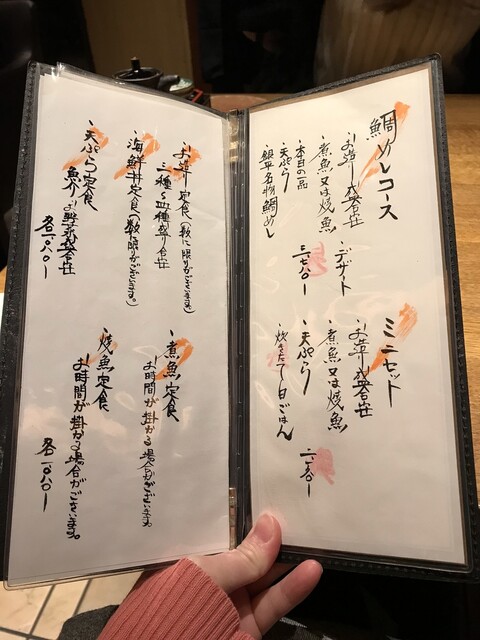 鯛めしコース
・お造り盛合せ
・煮魚又は焼魚
・本日の一品
・天ぷら
・銀平名物鯛めし
・デザート
三、七八〇ー
ミニセット
・お造り盛合せ
・煮魚又は焼魚
・天ぷら
・炊きたて白ごはん
・お造り定食(数に限りがございます。)
三種又は四種盛り合せ
・海鮮丼定食(数に限りがございます。)
・天ぷら定食
魚介とお野菜盛合せ
各一、〇八〇ー
・煮魚定食
お時間が掛かる場合がございます。
・焼魚定食
お時間が掛かる場合がございます。
各一、〇八〇ー